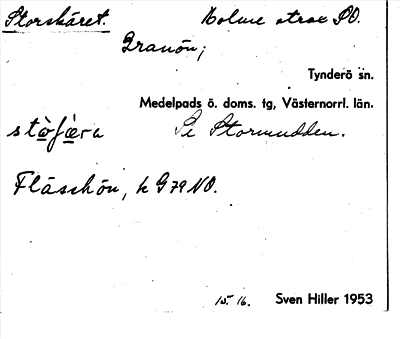 Storskäret. Holme strax SO.
Branön;
Tynderö sn.
Medelpads ö. doms. tg, Västernorrl. län.
stò̱ʃæ̱ra Se Storrudden.
Flässhön, k G79 NO.
15/16. Sven Hiller 1953